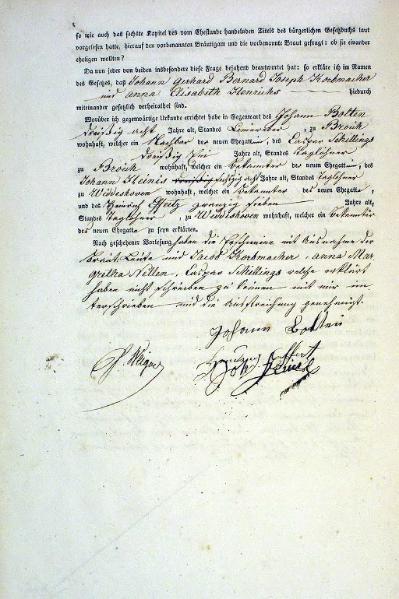 so wie auch das sechste Kapitel des vom Ehestande handelnden Titels des bürgerlichen Gesetzbuchs laut
vorgelesen hatte, hierauf den vorbenannten Bräutigam und die vorbenannte Braut gefragt: ob sie einander
ehelichen wollten?
Da nun jeder von beiden insbesondere diese Frage bejahend beantwortet hat: so erkläre ich im Namen
des Gesetzes, daß Johann Gerhard Bernard Joseph Korbmacher
und Anna Elisabeth Henrichs hiedurch
miteinander gesetzlich verheirathet sind.
Worüber ich gegenwärtige Urkunde errichtet habe in Gegenwart des Johann Bolten
dreißig acht Jahre alt, Standes zu Broich
wohnhaft, welcher ein Nachbar des neuen Ehegatten, des Caspar Schillings
dreißig Jahre alt, Standes Taglöhner
zu Broich wohnhaft, welcher ein Bekannter des neuen Ehegatten, des
Johann Heines Jahre alt, Standes Taglöhner
zu Widdeshoven wohnhaft, welcher ein Bekannter des neuen Ehegatten,
und des Heinrich zwanzig sieben Jahre alt,
Standes Taglöhner, zu Widdeshoven wohnhaft, welcher ein Bekannter
des neuen Ehegatten zu seyn erklärten.
Nach geschehener Vorlesung haben die Erschienenen mit Ausnahme der
Braut Leute und Jacob Korbmacher, Anna Mar
gretha Nillen, Caspar Schillings welche erklärt
haben nicht schreiben zu können mit mir un
terschrieben und die Ausstreichung genehmigt.
Johann Bolten